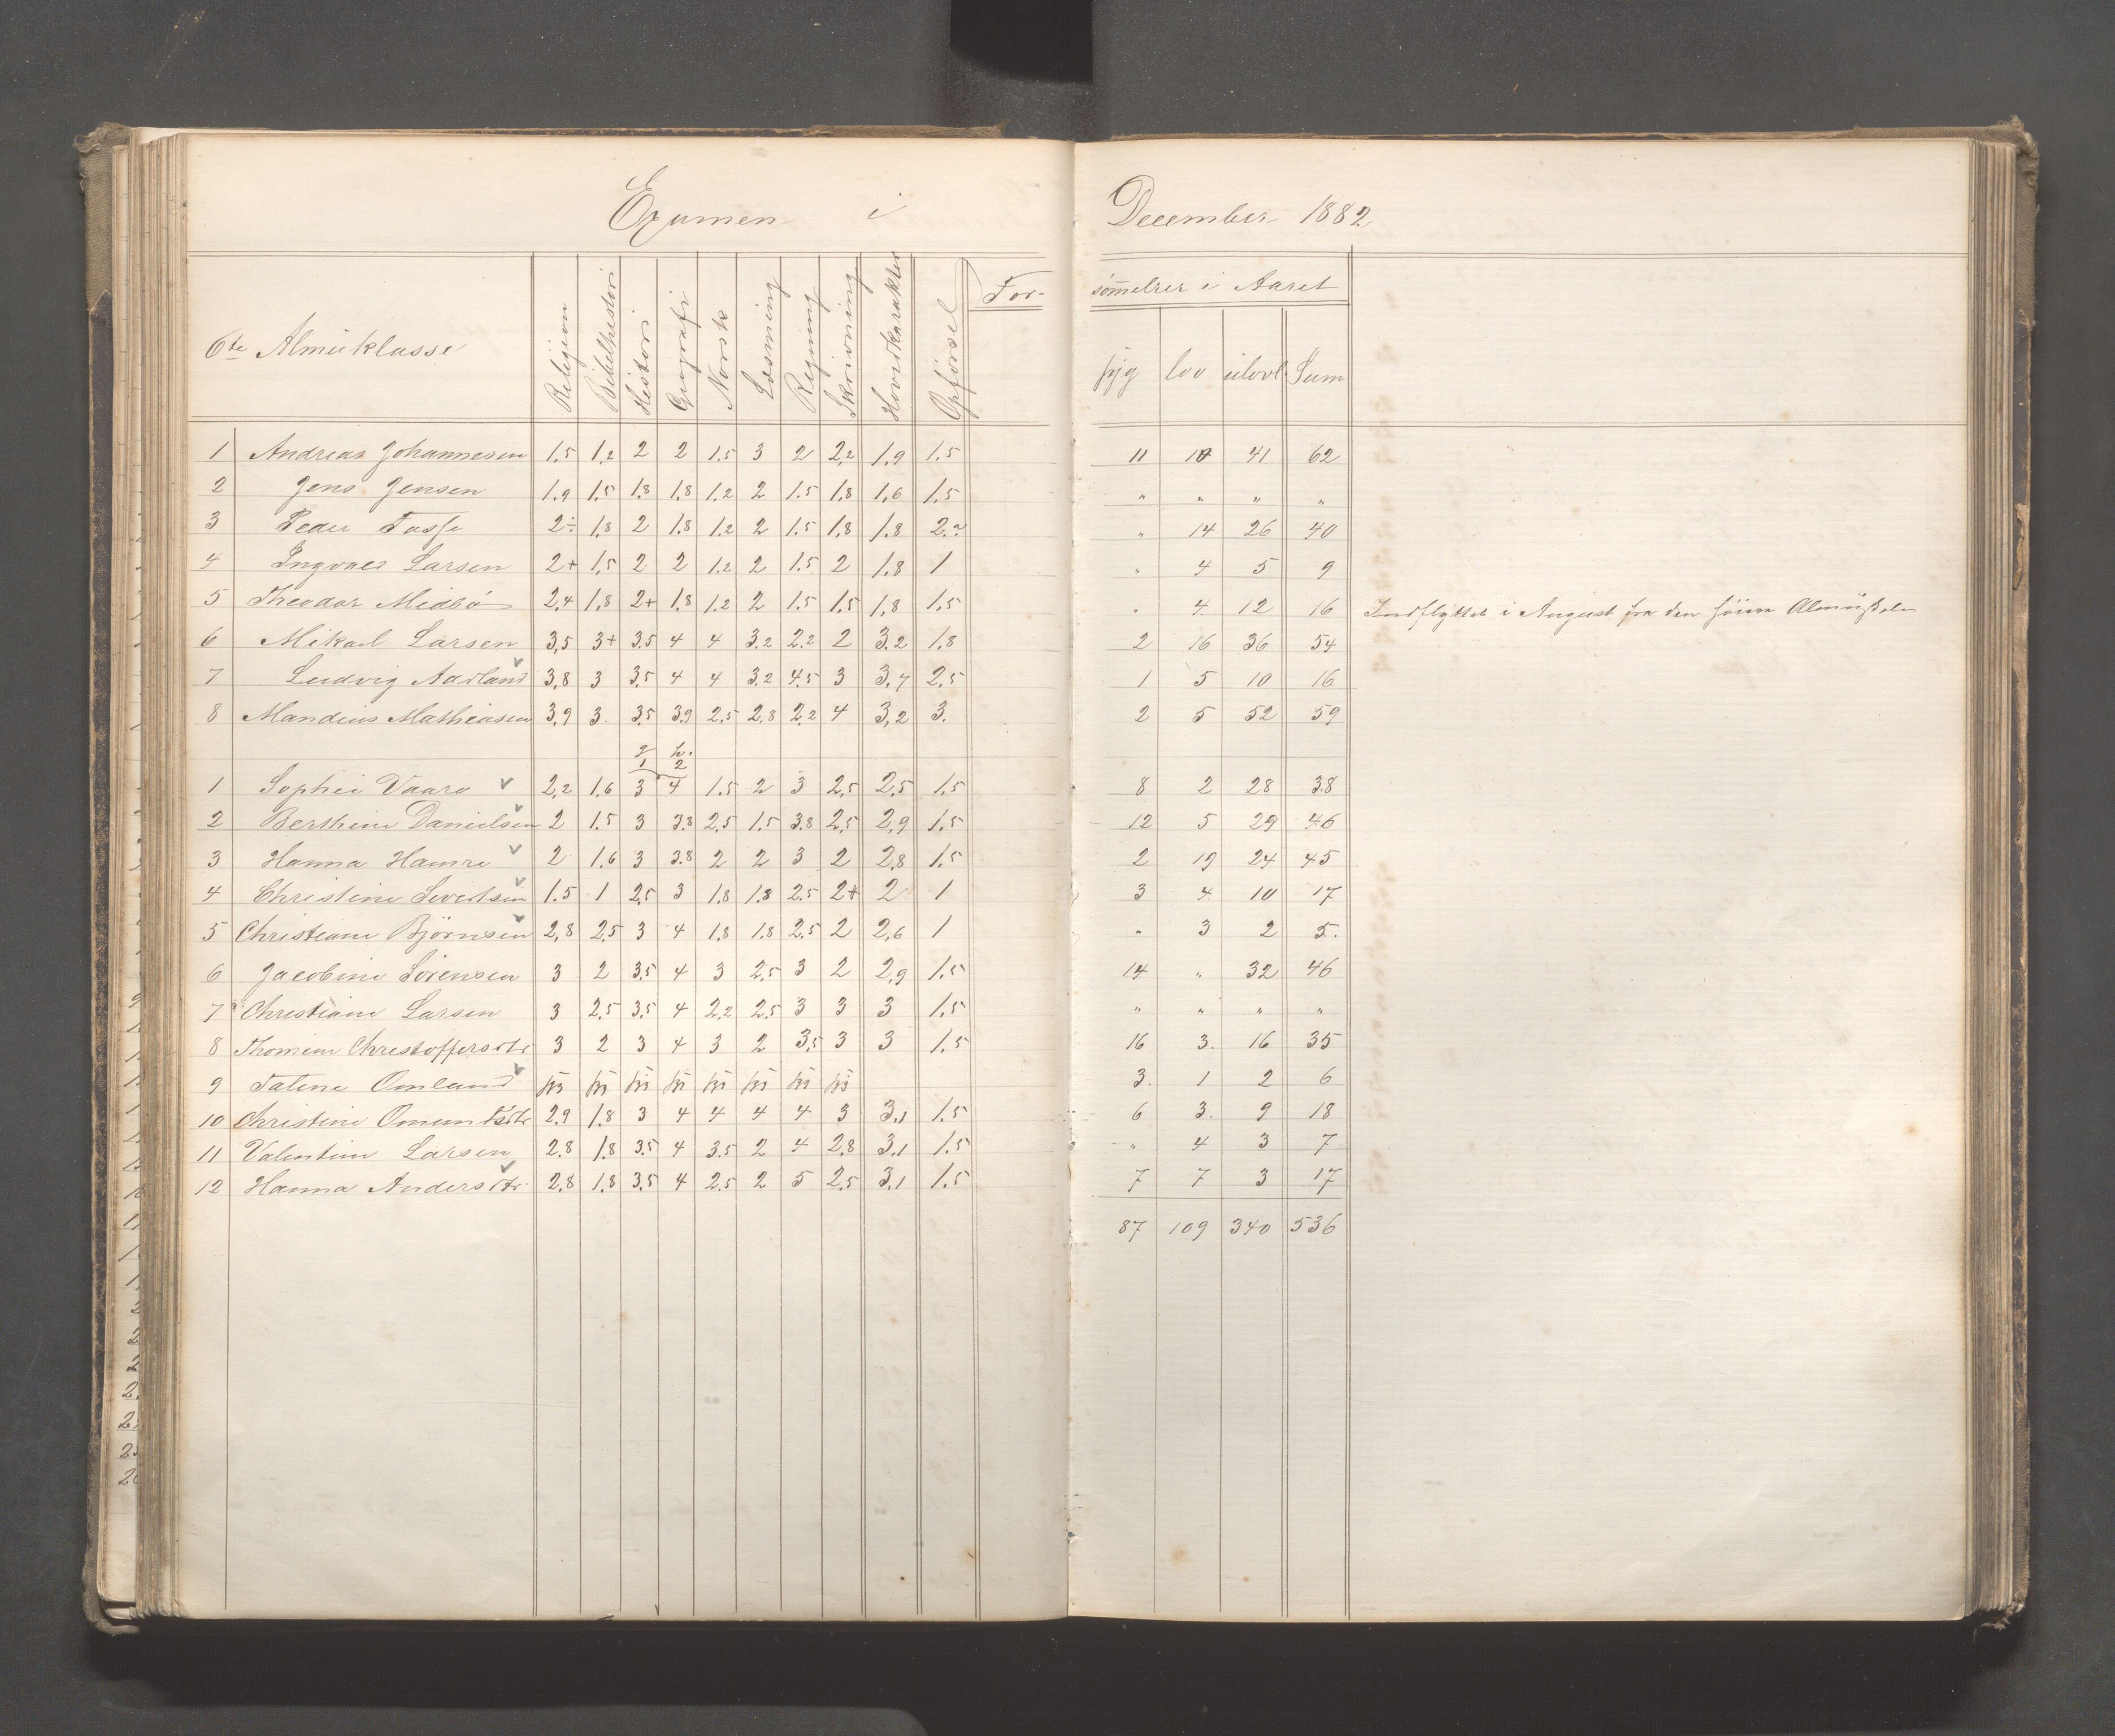 Examen i December 1882
6te Almuklasse Religion Bibelhistori Histori Geografi Norsk Læsning Regning Skrivning Hovedkarakter Opførsel For- sømmelser i Aaret
syg lov ulovl. Sum
1 Andreas Johannesen 1,5 1,2 2 2 1,5 3 2 2,2 1,9 1,5 11 10 41 62
2 Jens Jensen 1,9 1,5 1,8 1,8 1,2 2 1,5 1,8 1,6 1,5 " " " "
3 Peder Tasse 2÷ 1,8 2 1,8 1,2 2 1.5 1,8 1,8 2.2 " 14 26 40
4 Ingvald Larsen 2+ 1,5 2 2 1,2 2 1.5 2 1,8 1 " 4 5 9
5 Theodor Midbø 2,4 1,8 2+ 1,8 1,2 2 1.5 1,5 1,8 1,5 " 4 12 16 Indflyttet i August fra den høiere Almuskole
6 Mikael Larsen 3,5 3+ 3.5 4 4 3.2 2.2 2 3.2 1,8 2 16 36 54
7 Ludvig Aarland 3,8 3 3,5 4 4 3.2 4.5 3 3,7 2,5 1 5 10 16
8 Mandius Mathiasen 3,9 3. 3,5 3,9 2,5 2,8 2,2 4 3,2 3. 2 5 52 59
g h.
1 2
1 Sophie Vaaro v 2,2 1,6 3 4 1.5 2 3 2,5 2,5 1,5 8 2 28 38
2 Berthine Danielsen v 2 1.5 3 3.8 2,5 1,5 3.8 2,5 2,9 1,5 12 5 29 46
3 Hanna Hamre v 2 1,6 3 3.8 2 2 3 2 2,8 1,5 2 19 24 45
4 Christine Sivertsen v 1.5 1 2,5 3 1,8 1.8 2.5 2+ 2 1 3 4 10 17
5 Christiane Bjørnsen v 2,8 2,5 3 4 1,8 1,8 2,5 2 2,6 1 " 3 2 5.
6 Jacobine Sørensen 3 2 3.5 4 3 2.5 3 2 2,9 1.5 14 " 32 46
7 Christiane Larsen 3 2,5 3,5 4 2,2 2,5 3 3 3 1,5 " " " "
8 Thomine Christoffersdtr 3 2 3 4 3 2 3,5 3 3 1,5 16 3. 16 35
9 Taline Omland v syg syg syg syg syg syg syg syg 3. 1 2 6
10 Christine Omundsdtr 2,9 1.8 3 4 4 4 4 3 3,1 1.5 6 3. 9 18
11 Valentine Larsen 2.8 1.8 3.5 4 3.5 2 4 2,8 3,1 1.5 " 4 3 7
12 Hanna Andersdtr v 2,8 1,8 3,5 4 2,5 2 5 2,5 3,1 1.5 7 7 3 17
87 109 340 536